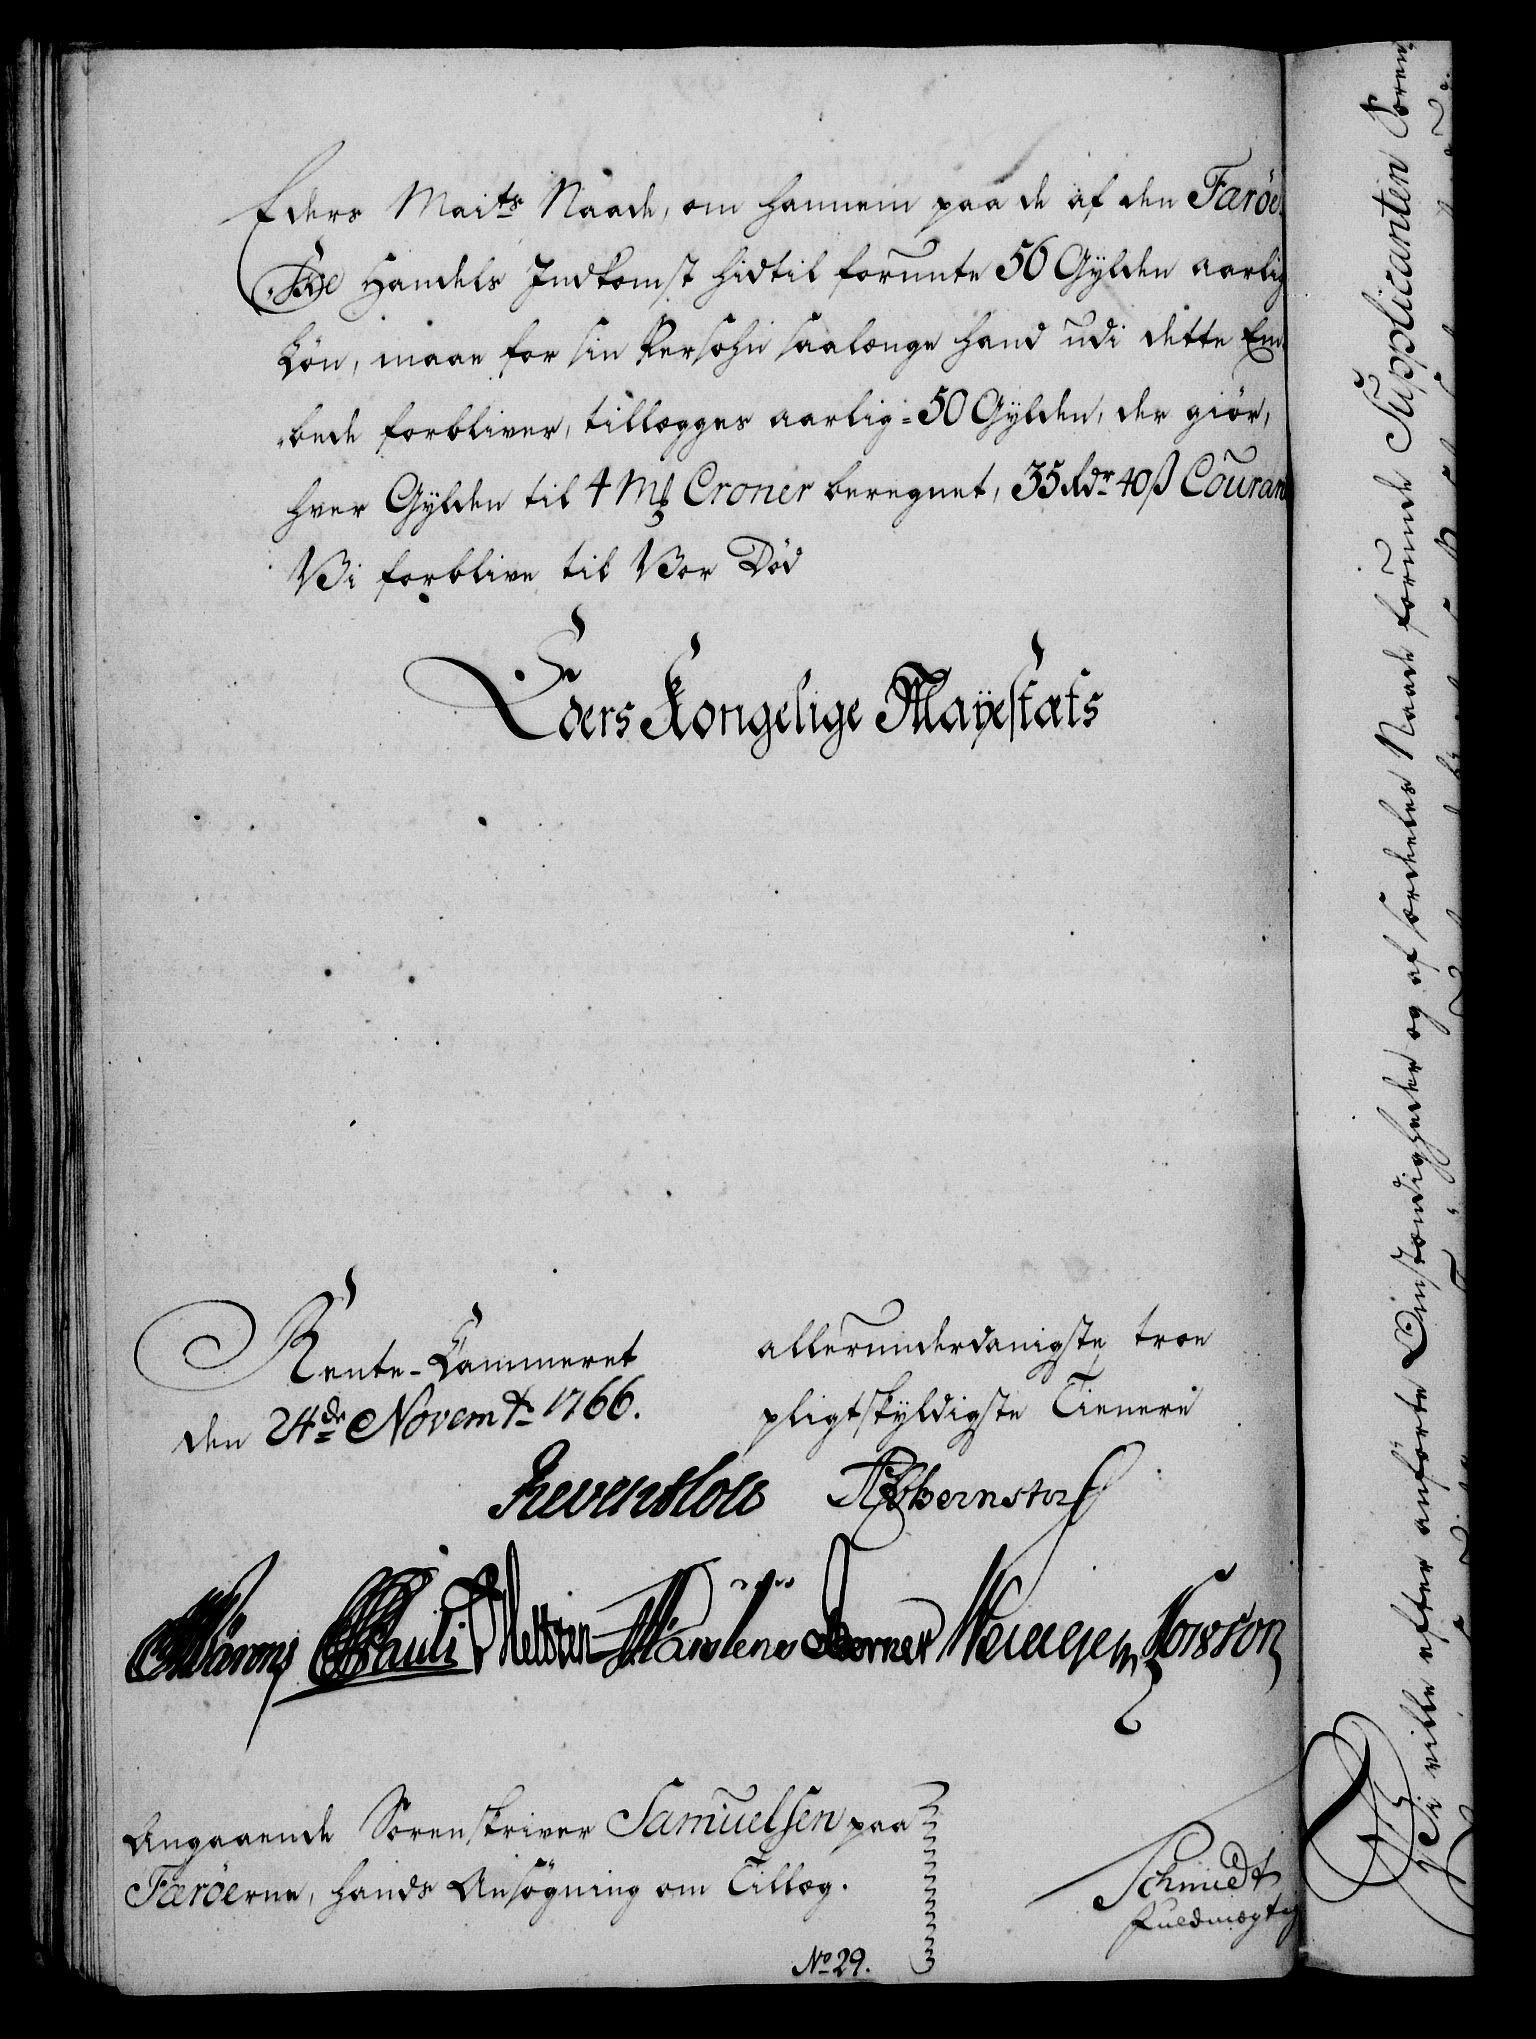 Eders Maits Naade, om hannem paa de af den Færöe
ske Handels Indkomst hidtil forunte 56 Gylden aarlig
Lön, maae for sin Persohn saalænge hand udi dette Em
bede forbliver, tillægges aarlig 50 Gylden, der giör,
hver Gylden til 4 Mk Croner beregnet, 35 Rdr 40 ß Couran
Vi forblive til Vor Död
Eders Kongelige Mayestæts
Rente-Cammeret
den 24de Novembr 1766.
allerunderdanigste troe
pligtskyldigste Tienere
Reventlow Bernstorf
Pauli Børner
Angaaende Sorenskriver Samuelsen paa
Færöerne, hands Ansögning om Tillæg.
Schmidt
fuldmægtig
No 29.
Vi ville efter anförte Omstændigheder og af særdeles Naade forunde Supplicanten Soren